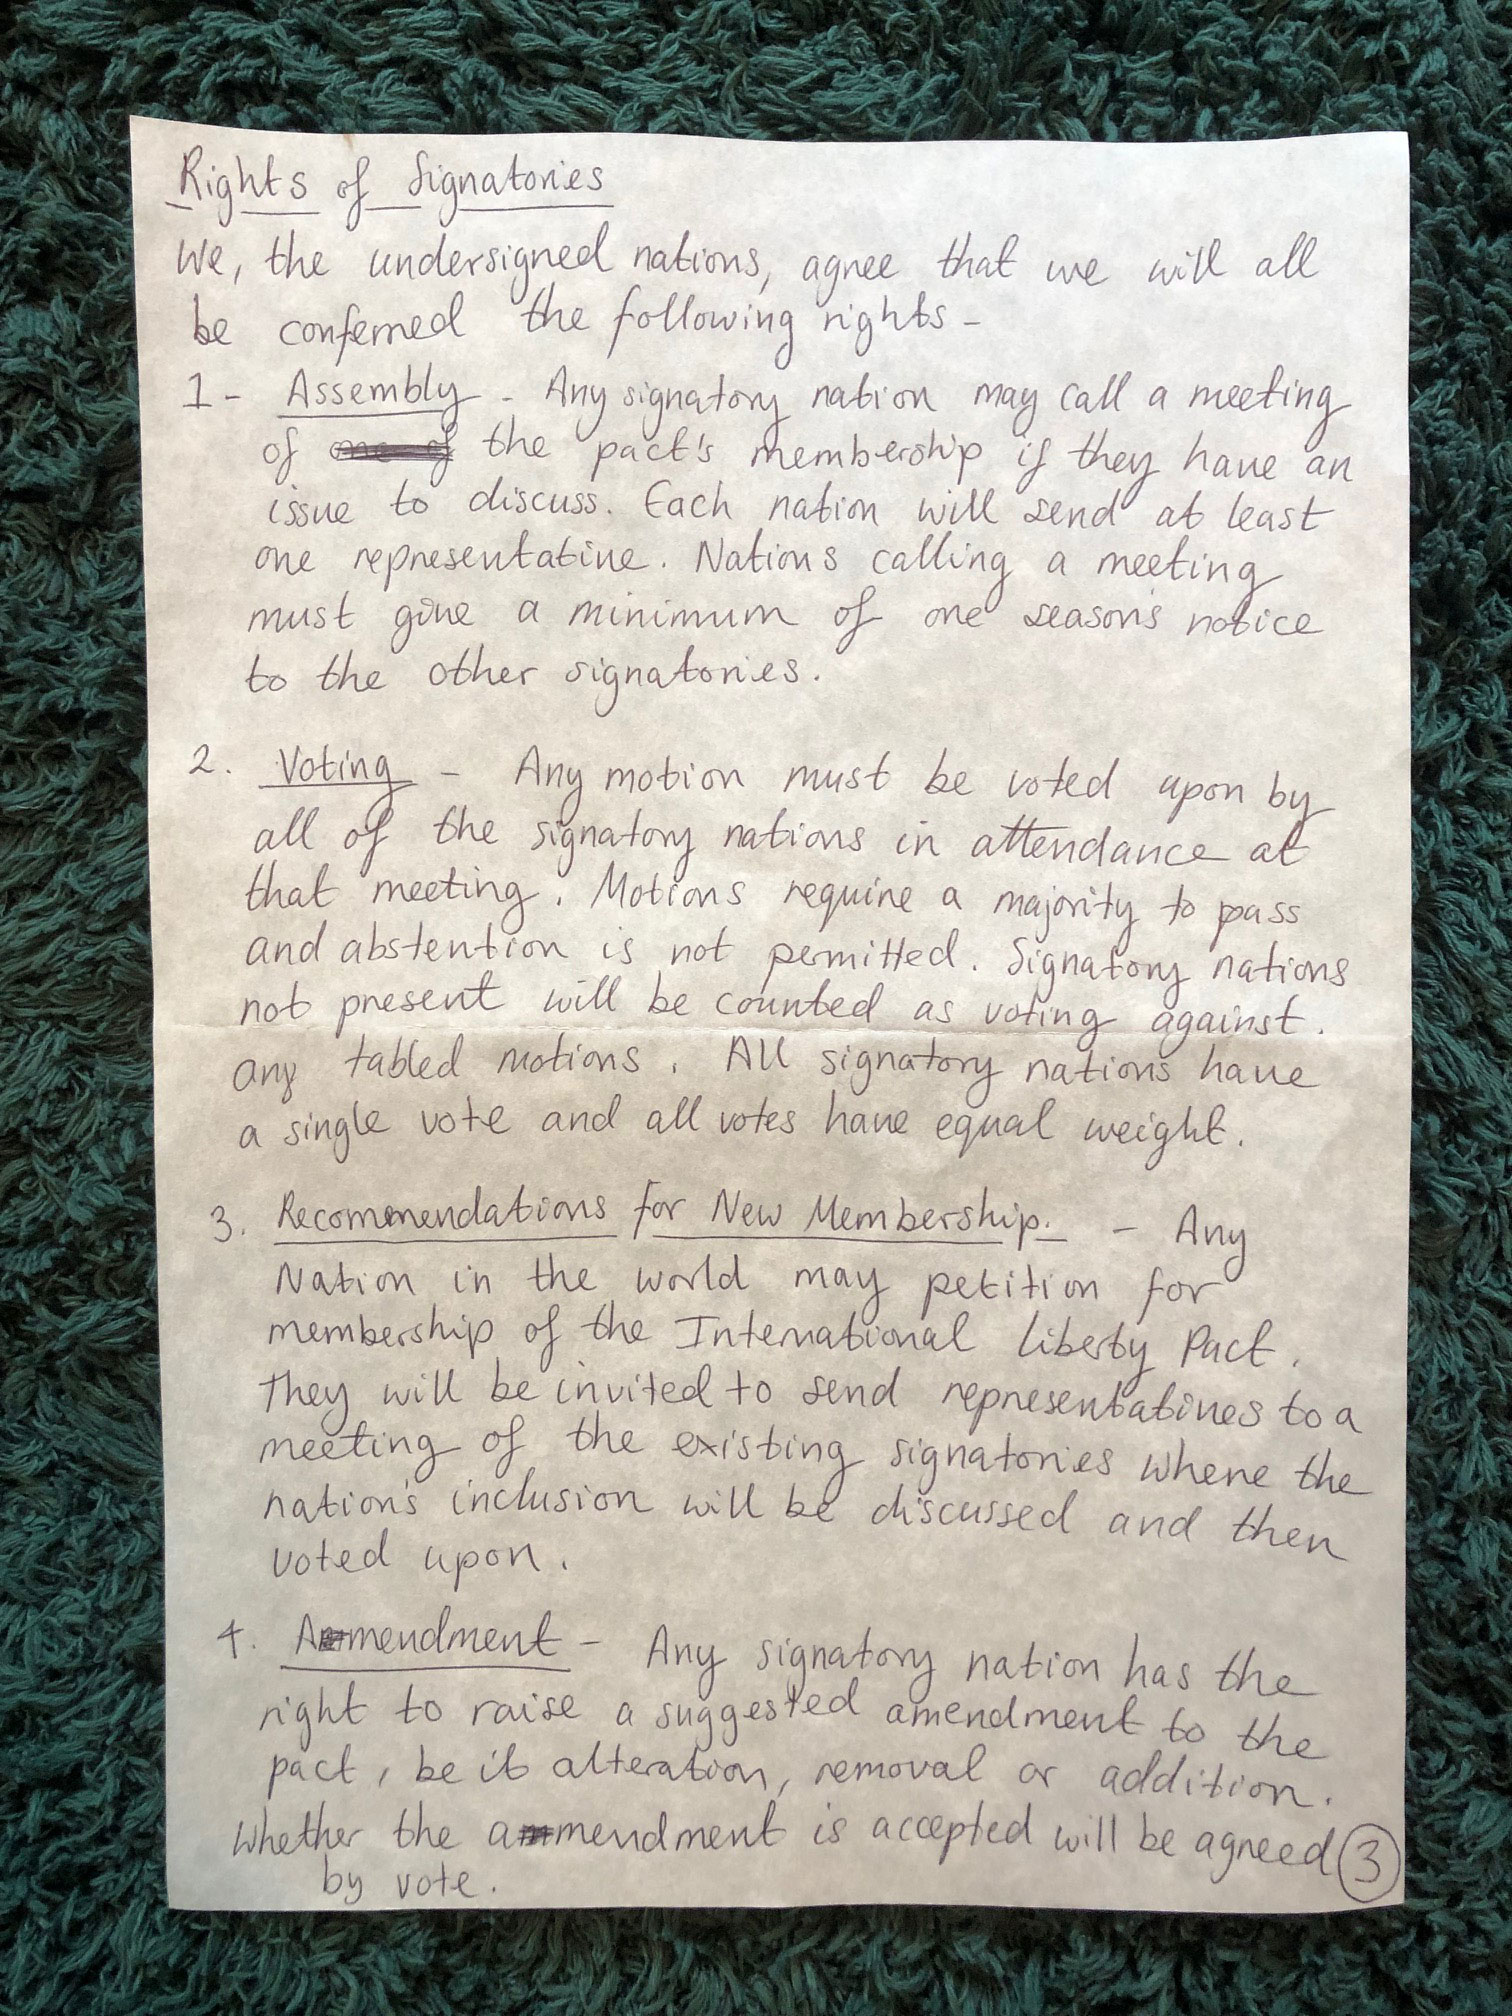 Rights of Signatories
We, the undersigned nations, agree that we will all
be conferred the following rights -
1- Assembly - Any signatory nation may call a meeting
of the pact's membership if they have an
issue to discuss. Each nation will send at least
one representative. Nations calling a meeting
must give a minimum of one season's notice
to the other signatories.
2. Voting - Any motion must be voted upon by
all of the signatory nations in attendance at
that meeting. Motions require a majority to pass
and abstention is not permitted. Signatory nations
not present will be counted as voting against.
any tabled motions. All signatory nations have
a single vote and all votes have equal weight.
3. Recommendations for New Membership. - Any
Nation in the world may petition for
membership of the International Liberty Pact.
They will be invited to send representatives to a
meeting of the existing signatories where the
nation's inclusion will be discussed and then
voted upon.
4. Amendment - Any signatory nation has the
right to raise a suggested amendment to the
pact, be it alteration, removal or addition.
Whether the amendment is accepted will be agreed 3
by vote.